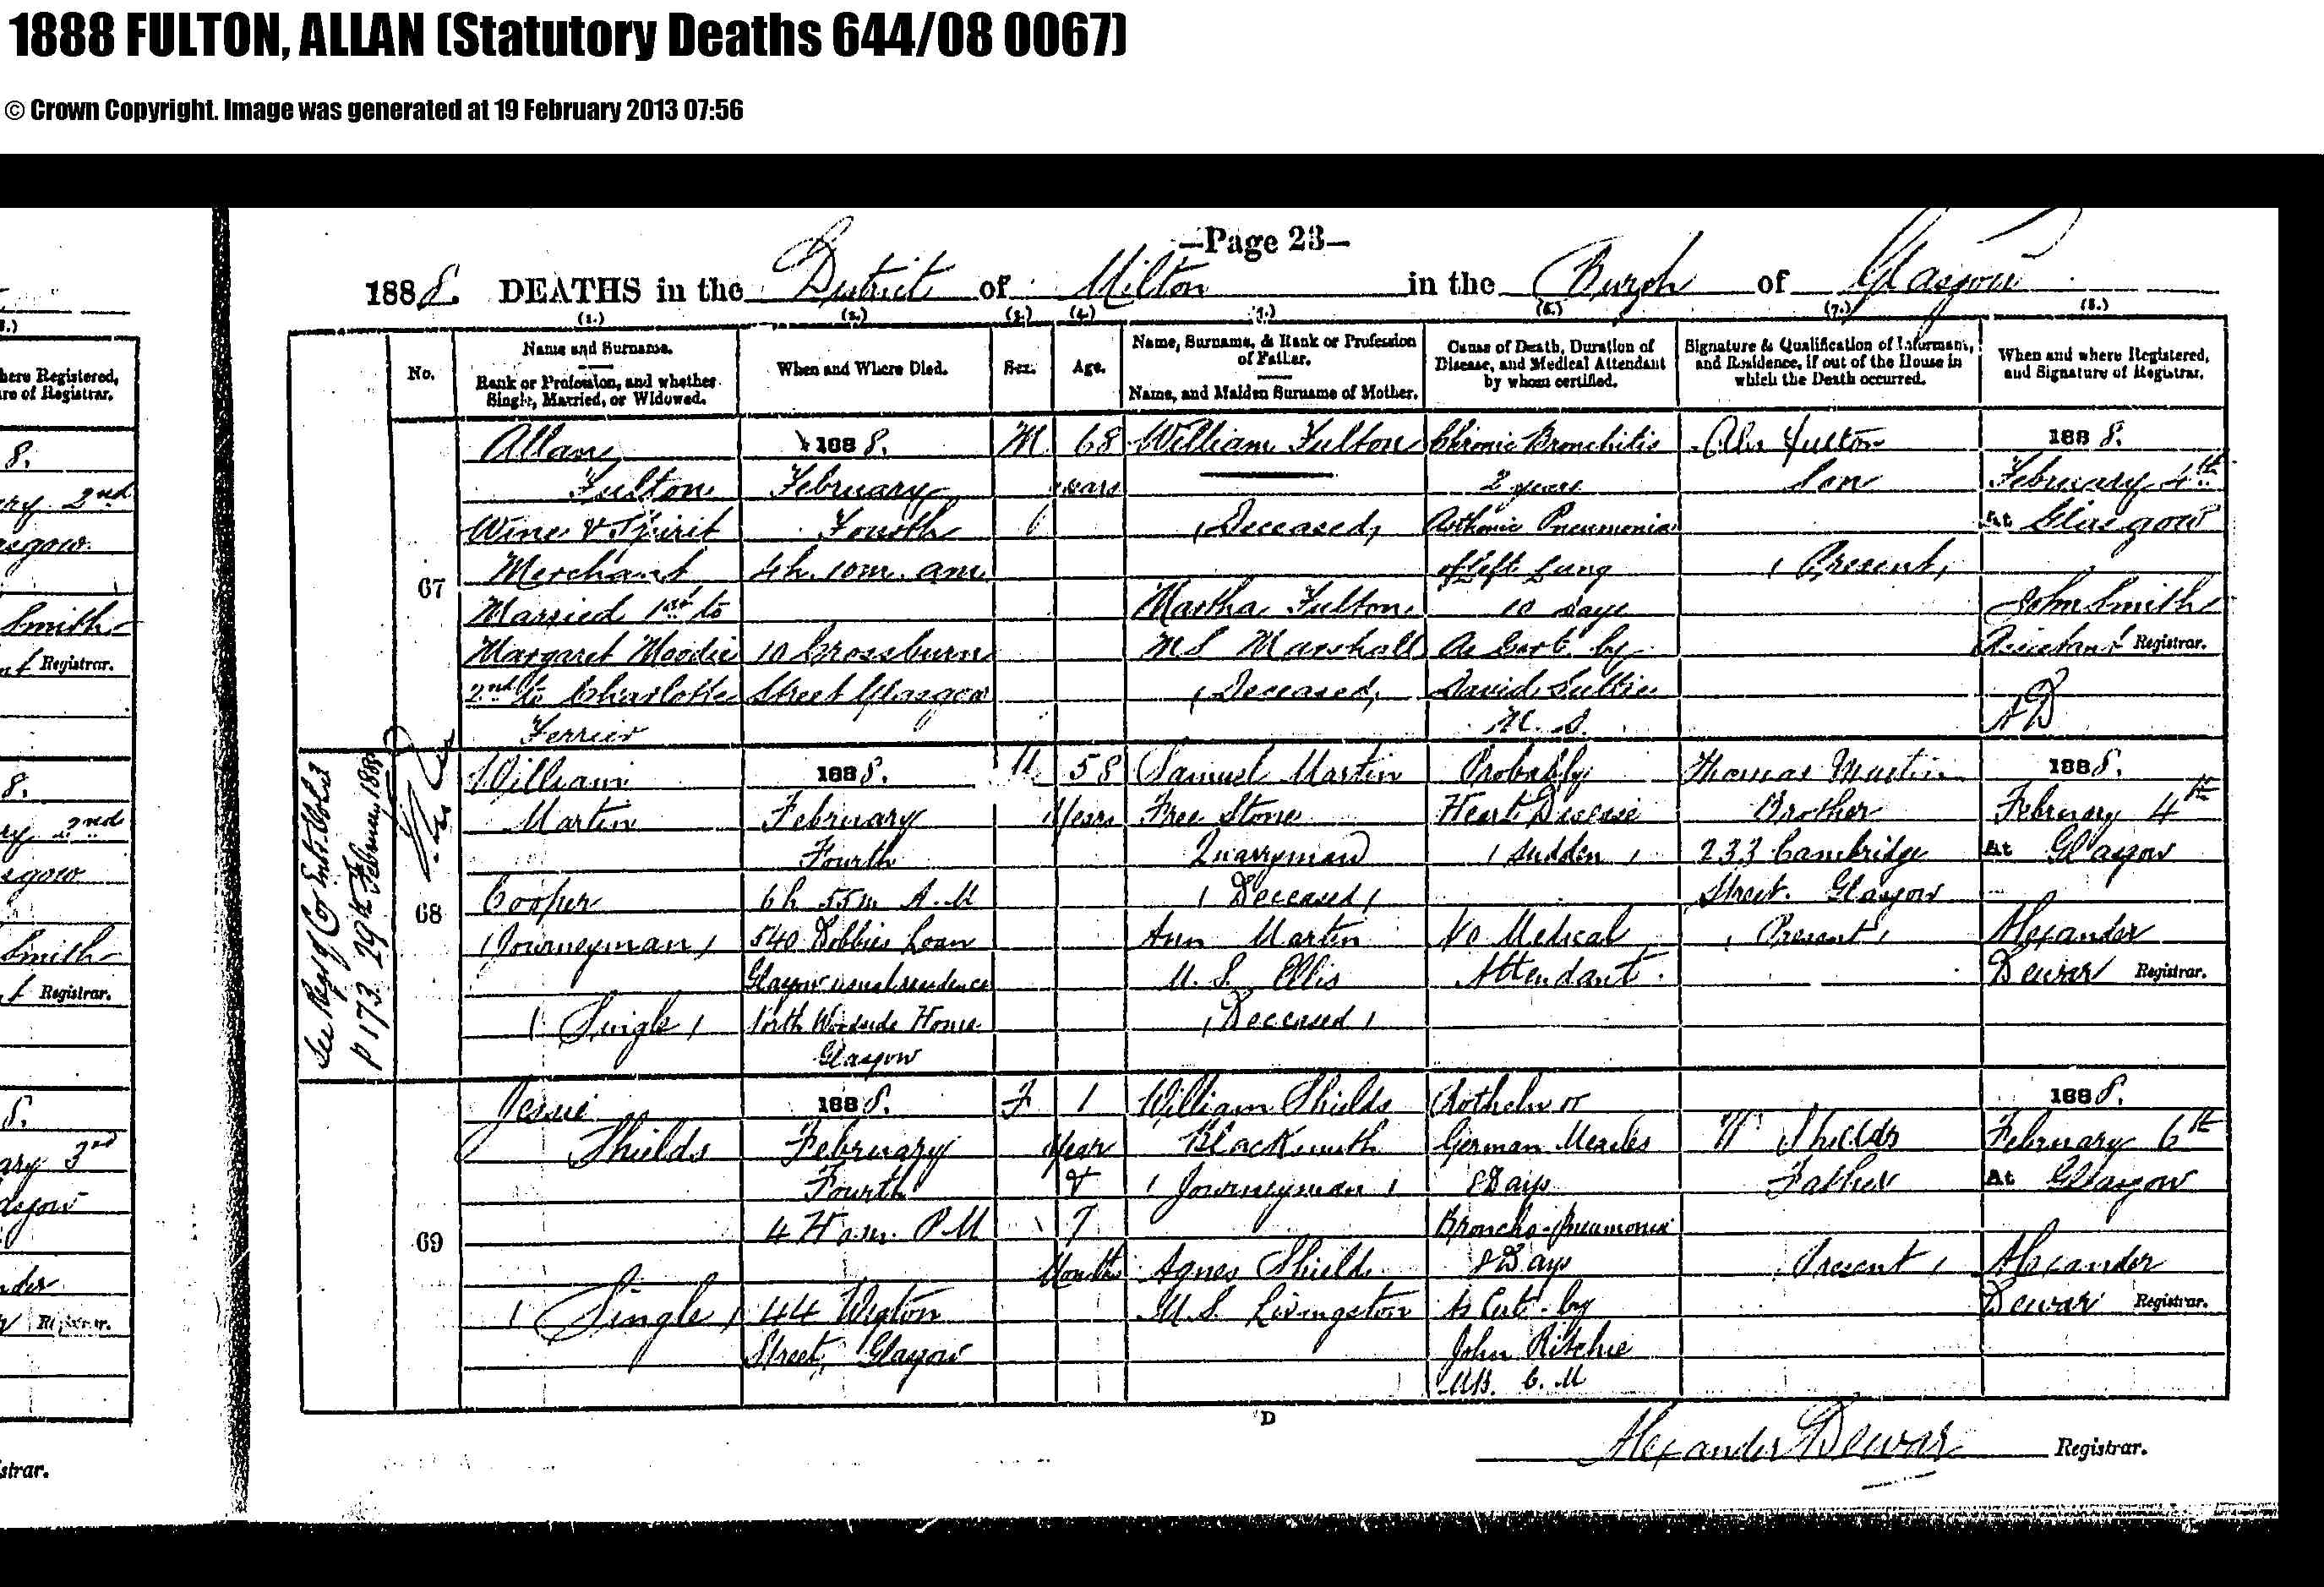 1888 FULTON, ALLAN (Statutory Deaths 644/08 0067)
© Crown Copyright. Image was generated at 19 February 2013 07:56
—Page 23—
1888. DEATHS in the District of Milton in the Burgh of Glasgow
(1.) (2.) (3.) (4.) (5.) (6.) (7.) (8.)
No.
Name and Surname.
Rank or Profession, and whether
Single, Married, or Widowed.
When and Where Died.
Sex.
Age.
Name, Surname, & Rank or Profession
of Father.
Name, and Maiden Surname of Mother.
Cause of Death, Duration of
Disease, and Medical Attendant
by whom certified.
Signature & Qualification of Informant,
and Residence, if out of the House in
which the Death occurred.
When and where Registered,
and Signature of Registrar.
67
Allan
Fulton
Wine & Spirit
Merchant
Married 1st to
Margaret Moodie
2nd to Charlotte
Ferrier
1888.
February
Fourth
4h. 10m. am
10 Crossburn
Street Glasgow
M
68
years
William Fulton
(Deceased)
Martha Fulton
MS Marshall
(Deceased)
Chronic Bronchitis
2 years
Asthenic Pneumonia
of Left Lung
10 days
As Cert. by
David
Alex Fulton
Son
(Present)
1888.
February 4th
At Glasgow
John Smith
Assistant Registrar.
AD
See Reg of Cor Ent. Vol.
P 173 29th February 1888
68
William
Martin
Cooper
(Journeyman)
(Single)
1888.
February
Fourth
6h 55m A.M
540 Dobbies Loan
Glasgow usual residence
North Woodside Home
Glasgow
M
58
Years
Samuel Martin
Free Stone
Quarryman
(Deceased)
Ann Martin
M.S. Ellis
(Deceased)
Probably
Heart Disease
(Sudden)
No Medical
Attendant.
Thomas Martin
Brother
233 Cambridge
Street. Glasgow
(Present)
1888.
February 4th
At Glasgow
Alexander
Dewar Registrar.
69
Jessie
Shields
(Single)
1888.
February
Fourth
4 H 0 m. PM
44 Wigton
Street, Glasgow
F
1
Year
&
7
Months
William Shields
Blacksmith
(Journeyman)
Agnes Shields
M.S. Livingston
Rotheln or
German Measles
8 Days
Broncho-Pneumonia
8 Days
As Cert. by
John Ritchie
MB. C.M
W Shields
Father
Present)
1888.
February 6th
At Glasgow
Alexander
Dewar Registrar.
D
Alexander Dewar Registrar.